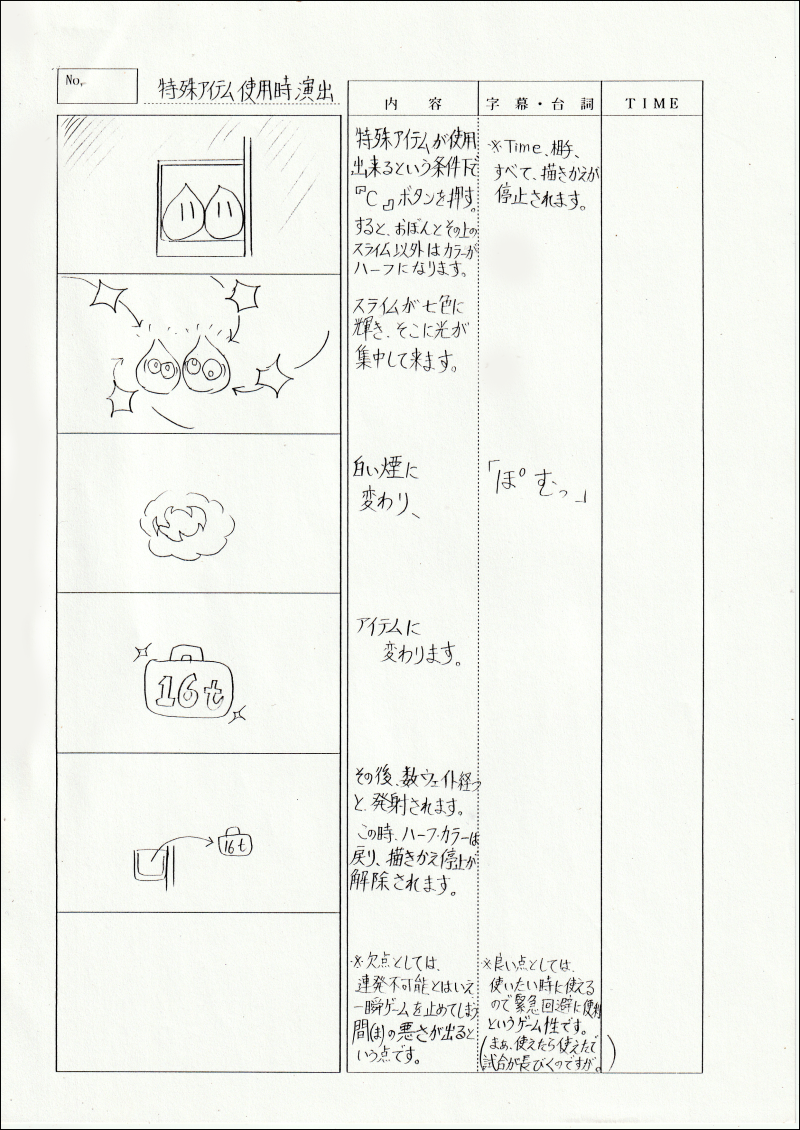 No.
特殊アイテム使用時演出
内容
字幕・台詞
TIME
特殊アイテムが使用
出来るという条件下で
『C』ボタンを押す。
すると、おぼんとその上の
スライム以外はカラーが
ハーフになります。
※Time、相手、
すべて、描きかえが
停止されます。
スライムが七色に
輝き、そこに光が
集中して来ます。
白い煙に
変わり、
「ぽむっ」
16t
アイテムに
変わります。
16t
その後、数ウェイト経つ
と、発射されます。
この時、ハーフ・カラーは
戻り、描きかえ停止が
解除されます。
※欠点としては、
連発不可能とはいえ、
一瞬ゲームを止めてしまう
間(ま)の悪さが出ると
いう点です。
※良い点としては、
使いたい時に使える
ので緊急回避に便利
というゲーム性です。
(まぁ、使えたら使えたで
試合が長びくのですが。)